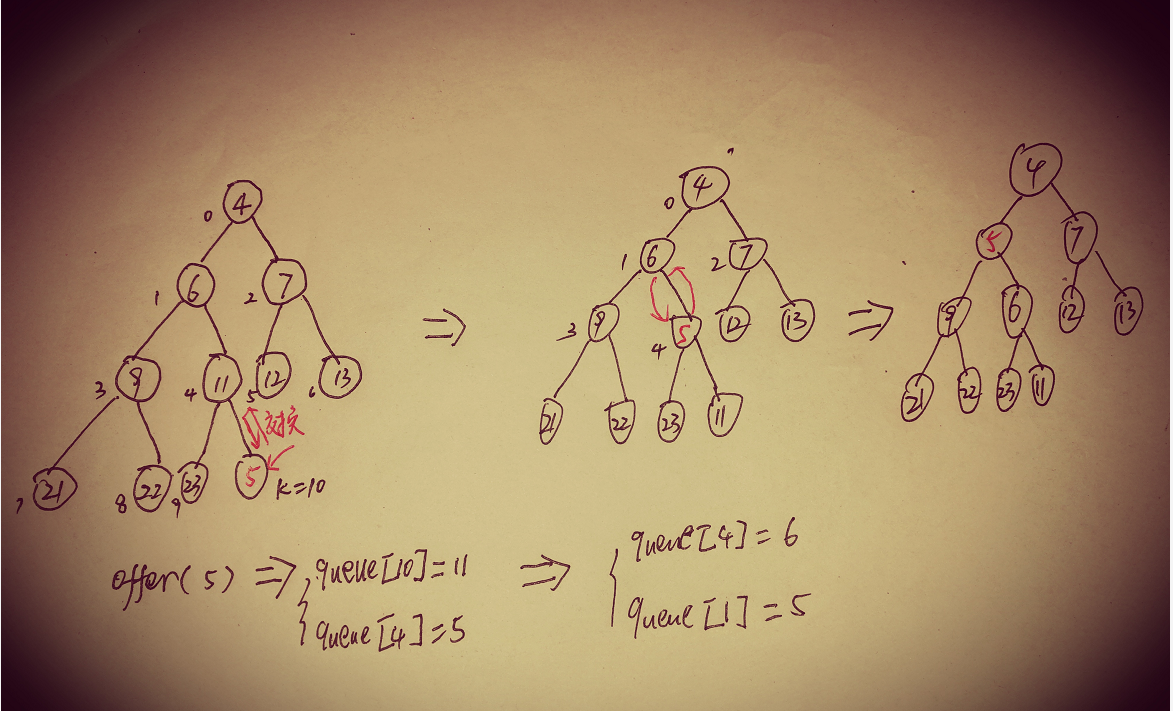 4 0
6 1
7 2
9 3
11 4
12 5
13 6
21 7
22 8
23 9
5
交换
k=10
4 0
6 1
7 2
9 3
5 4
12
13
21
22
23
11
4
5
7
9
6
12
13
21
22
23
11
offer(5) ⇒ queue[10]=11
queue[4]=5
⇒ queue[4]=6
queue[1]=5